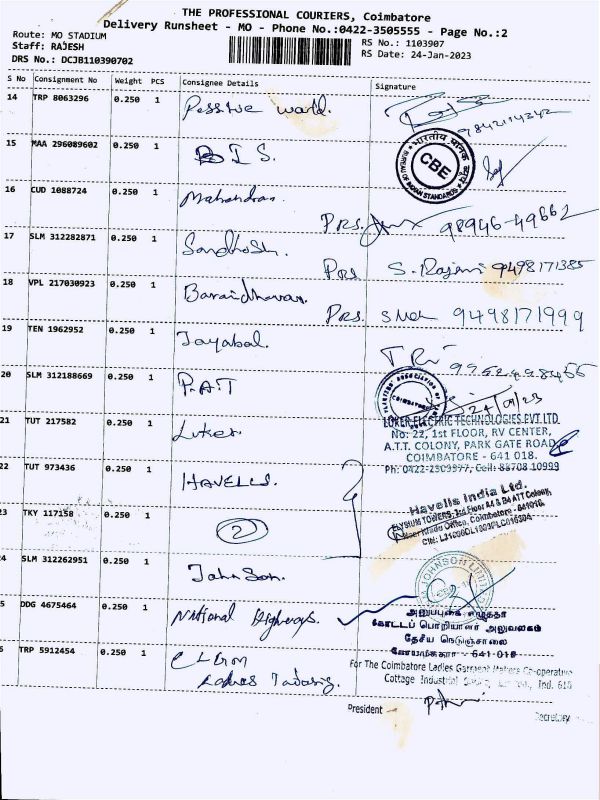 THE PROFESSIONAL COURIERS, Coimbatore
Delivery Runsheet - MO - Phone No.:0422-3505555 - Page No.:2
Route: MO STADIUM
Staff: RAJESH
DRS No.: DCJB110390702
RS No.: 1103907
RS Date: 24-Jan-2023
S No Consignment No Weight PCS Consignee Details Signature
14 TRP 8063296 0.250 1 world.
15 MAA 296089602 0.250 1 BIS.
BUREAU OF INDIAN STANDARDS
CBE
16 CUD 1088724 0.250 1 Mahendran. Prs. 98946-49662
17 SLM 312282871 0.250 1 Sandhosh. Prs S. Rajani 9498171385
18 VPL 217030923 0.250 1 Prs. 9498171999
19 TEN 1962952 0.250 1 Jayabal.
20 SLM 312188669 0.250 1 P.A.T 24/01/23
21 TUT 217582 0.250 1 Luker.
LUKER ELECTRIC TECHNOLOGIES PVT LTD
No: 22, 1st FLOOR, RV CENTER,
A.T.T. COLONY, PARK GATE ROAD
COIMBATORE - 641 018.
22 TUT 973436 0.250 1 HAVELLS.
Havells India Ltd.
23 TKY 117158 0.250 1 2
24 SLM 312262951 0.250 1 Johnson.
5 DDG 4675464 0.250 1 National Highways.
கோட்டப் பொறியாளர் அலுவலகம்
தேசிய நெடுஞ்சாலை
6 TRP 5912454 0.250 1
For The Coimbatore Ladies Garment Makers Co-operative
Cottage Industrial
President Secretary